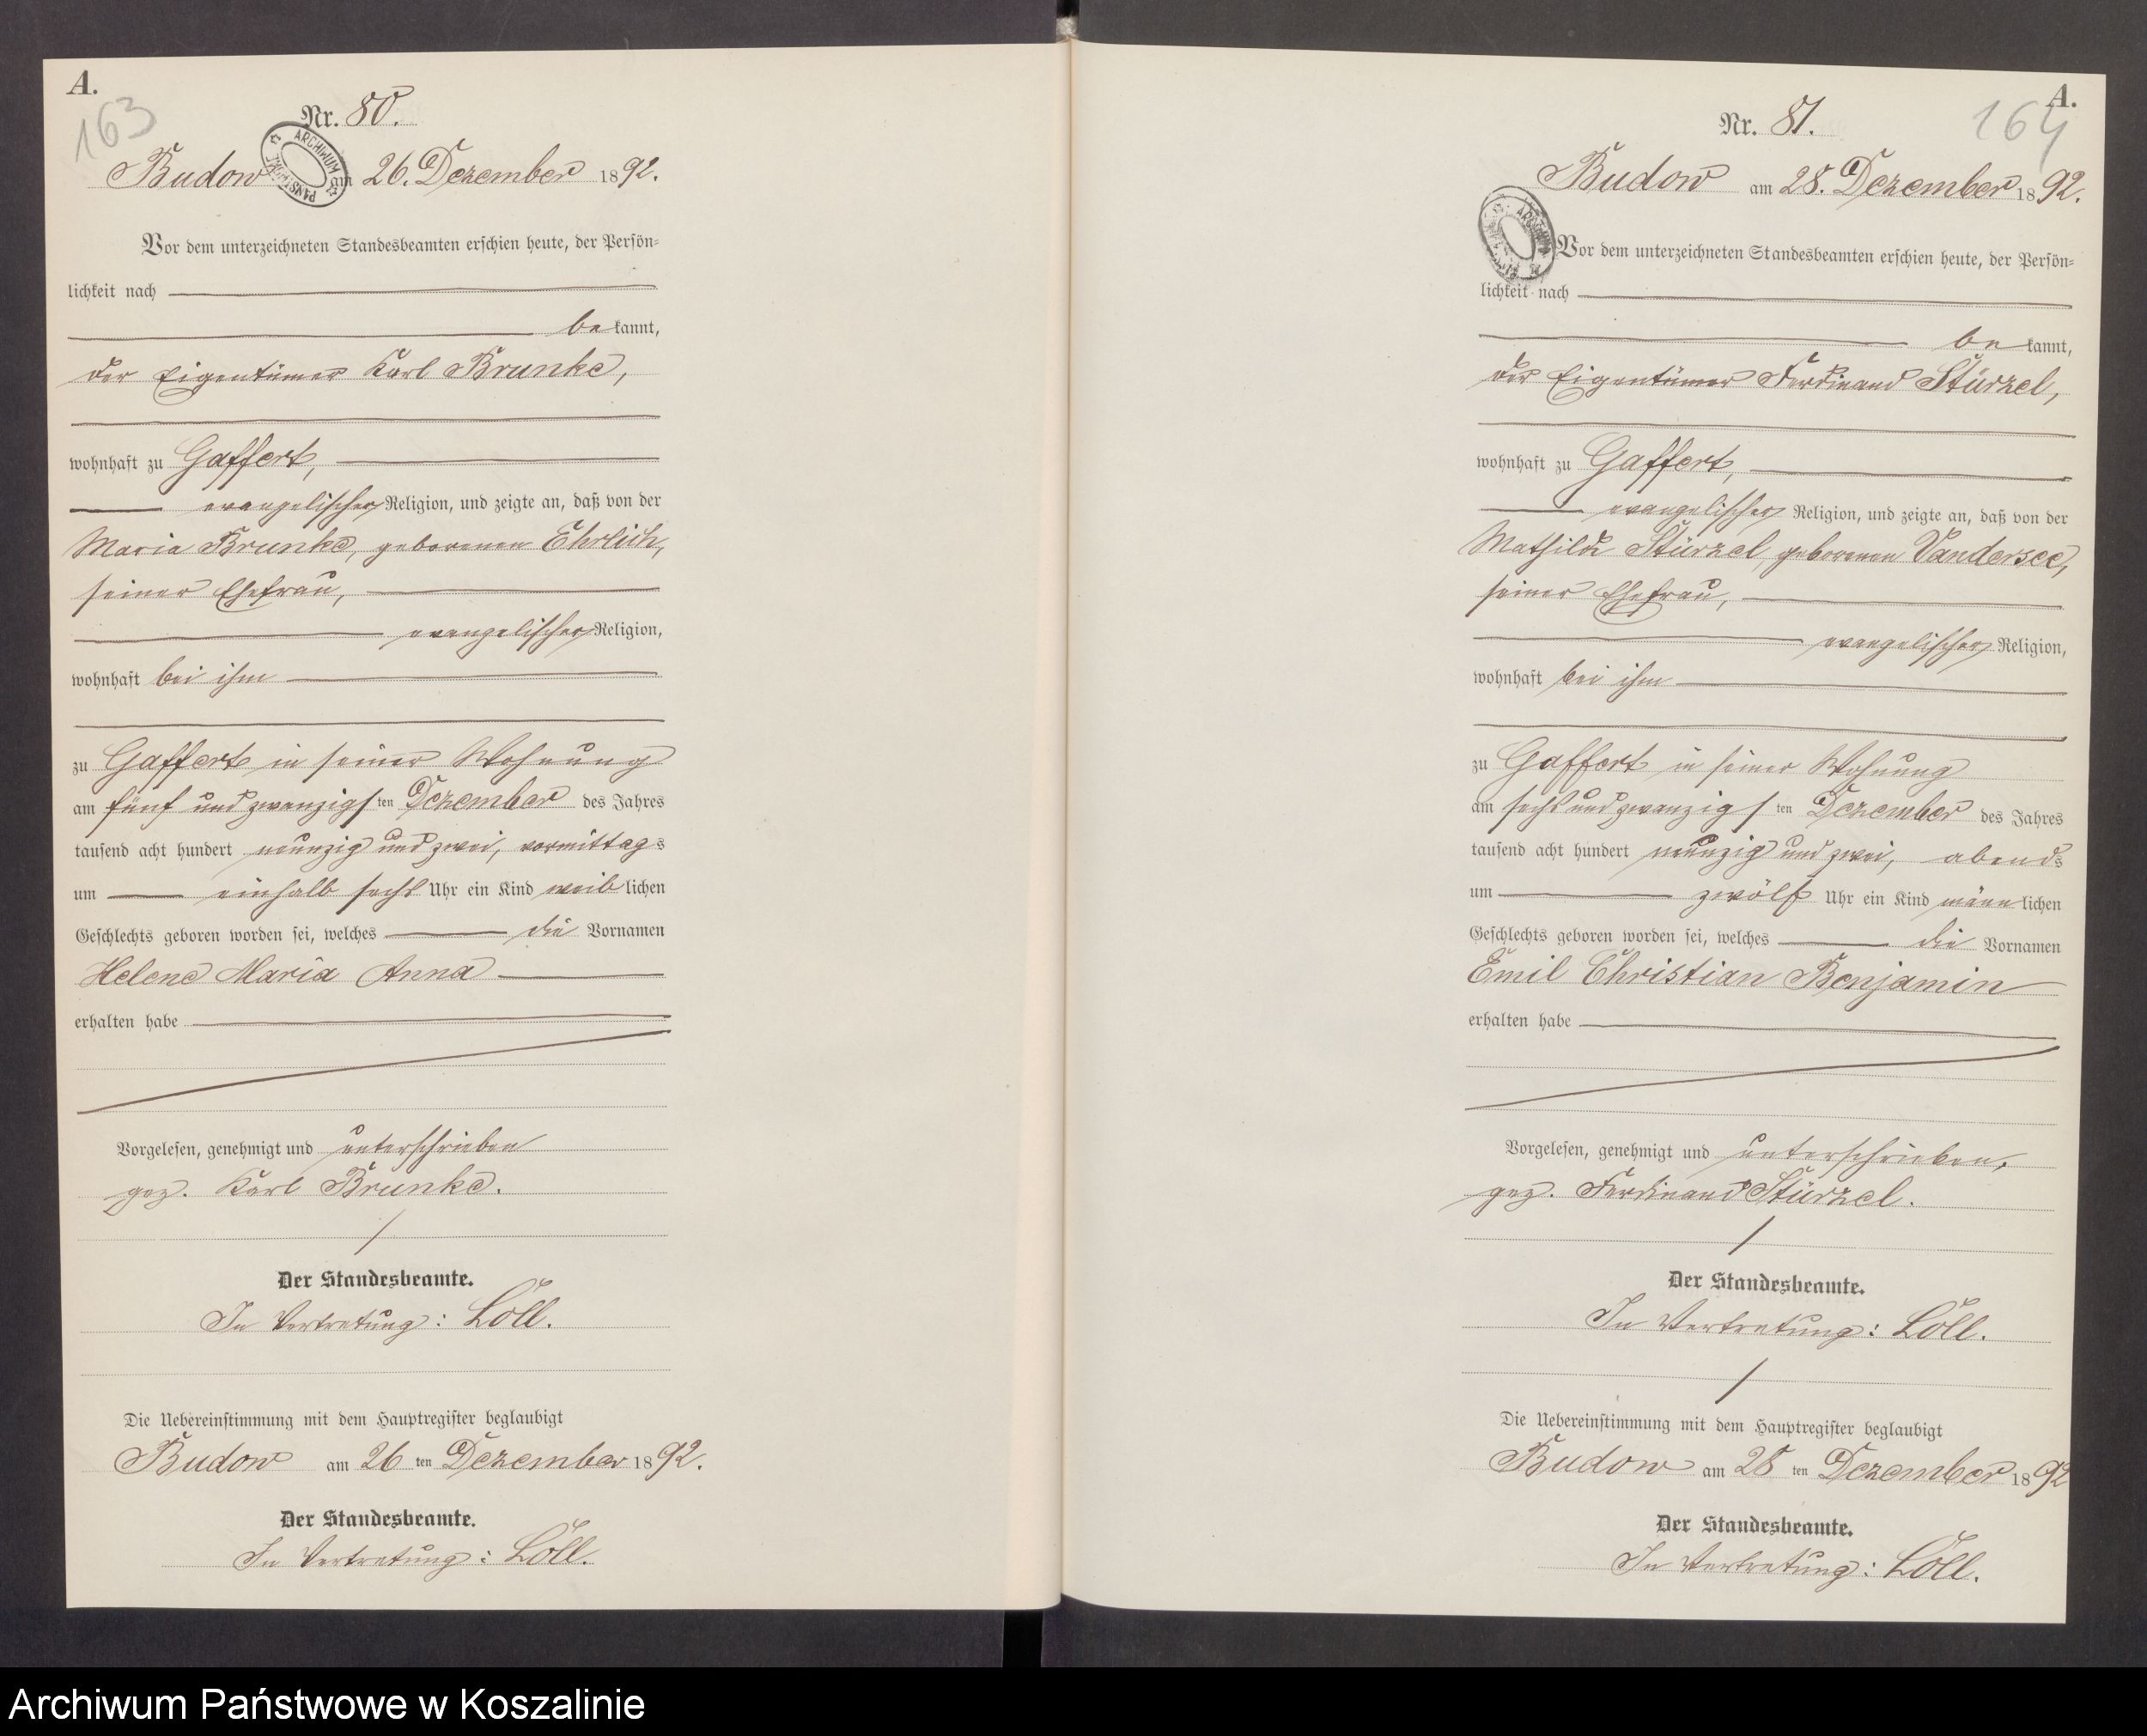 A.
163
Nr. 80.
ARCHIWUM PAŃSTWOWE
Budow am 26. Dezember 1892.
Vor dem unterzeichneten Standesbeamten erschien heute, der Persön=
lichkeit nach
bekannt,
der Eigentümer Karl Brunke,
wohnhaft zu Gaffert,
evangelischer Religion, und zeigte an, daß von der
Maria Brunke, geborenen Ehrlich,
seiner Ehefrau,
evangelischer Religion,
wohnhaft bei ihm
zu Gaffert in seiner Wohnung
am fünf und zwanzigsten Dezember des Jahres
tausend acht hundert neunzig und zwei, vormittags
um einhalb sechs Uhr ein Kind weiblichen
Geschlechts geboren worden sei, welches die Vornamen
Helene Maria Anna
erhalten habe
Vorgelesen, genehmigt und unterschrieben
gez. Karl Brunke.
Der Standesbeamte.
In Vertretung: Löll.
Die Uebereinstimmung mit dem Hauptregister beglaubigt
Budow am 26ten Dezember 1892.
Der Standesbeamte.
In Vertretung: Löll.
A.
164
Nr. 81.
Budow am 28. Dezember 1892.
Vor dem unterzeichneten Standesbeamten erschien heute, der Persön=
lichkeit nach
bekannt,
der Eigentümer Ferdinand Stürzel,
wohnhaft zu Gaffert,
evangelischer Religion, und zeigte an, daß von der
Mathilde Stürzel, geborenen Vandersee,
seiner Ehefrau,
evangelischer Religion,
wohnhaft bei ihm
zu Gaffert in seiner Wohnung
am sechs und zwanzigsten Dezember des Jahres
tausend acht hundert neunzig und zwei, abends
um zwölf Uhr ein Kind männlichen
Geschlechts geboren worden sei, welches die Vornamen
Emil Christian Benjamin
erhalten habe
Vorgelesen, genehmigt und unterschrieben,
gez. Ferdinand Stürzel.
Der Standesbeamte.
In Vertretung: Löll.
Die Uebereinstimmung mit dem Hauptregister beglaubigt
Budow am 28ten Dezember 1892
Der Standesbeamte.
In Vertretung: Löll.
Archiwum Państwowe w Koszalinie